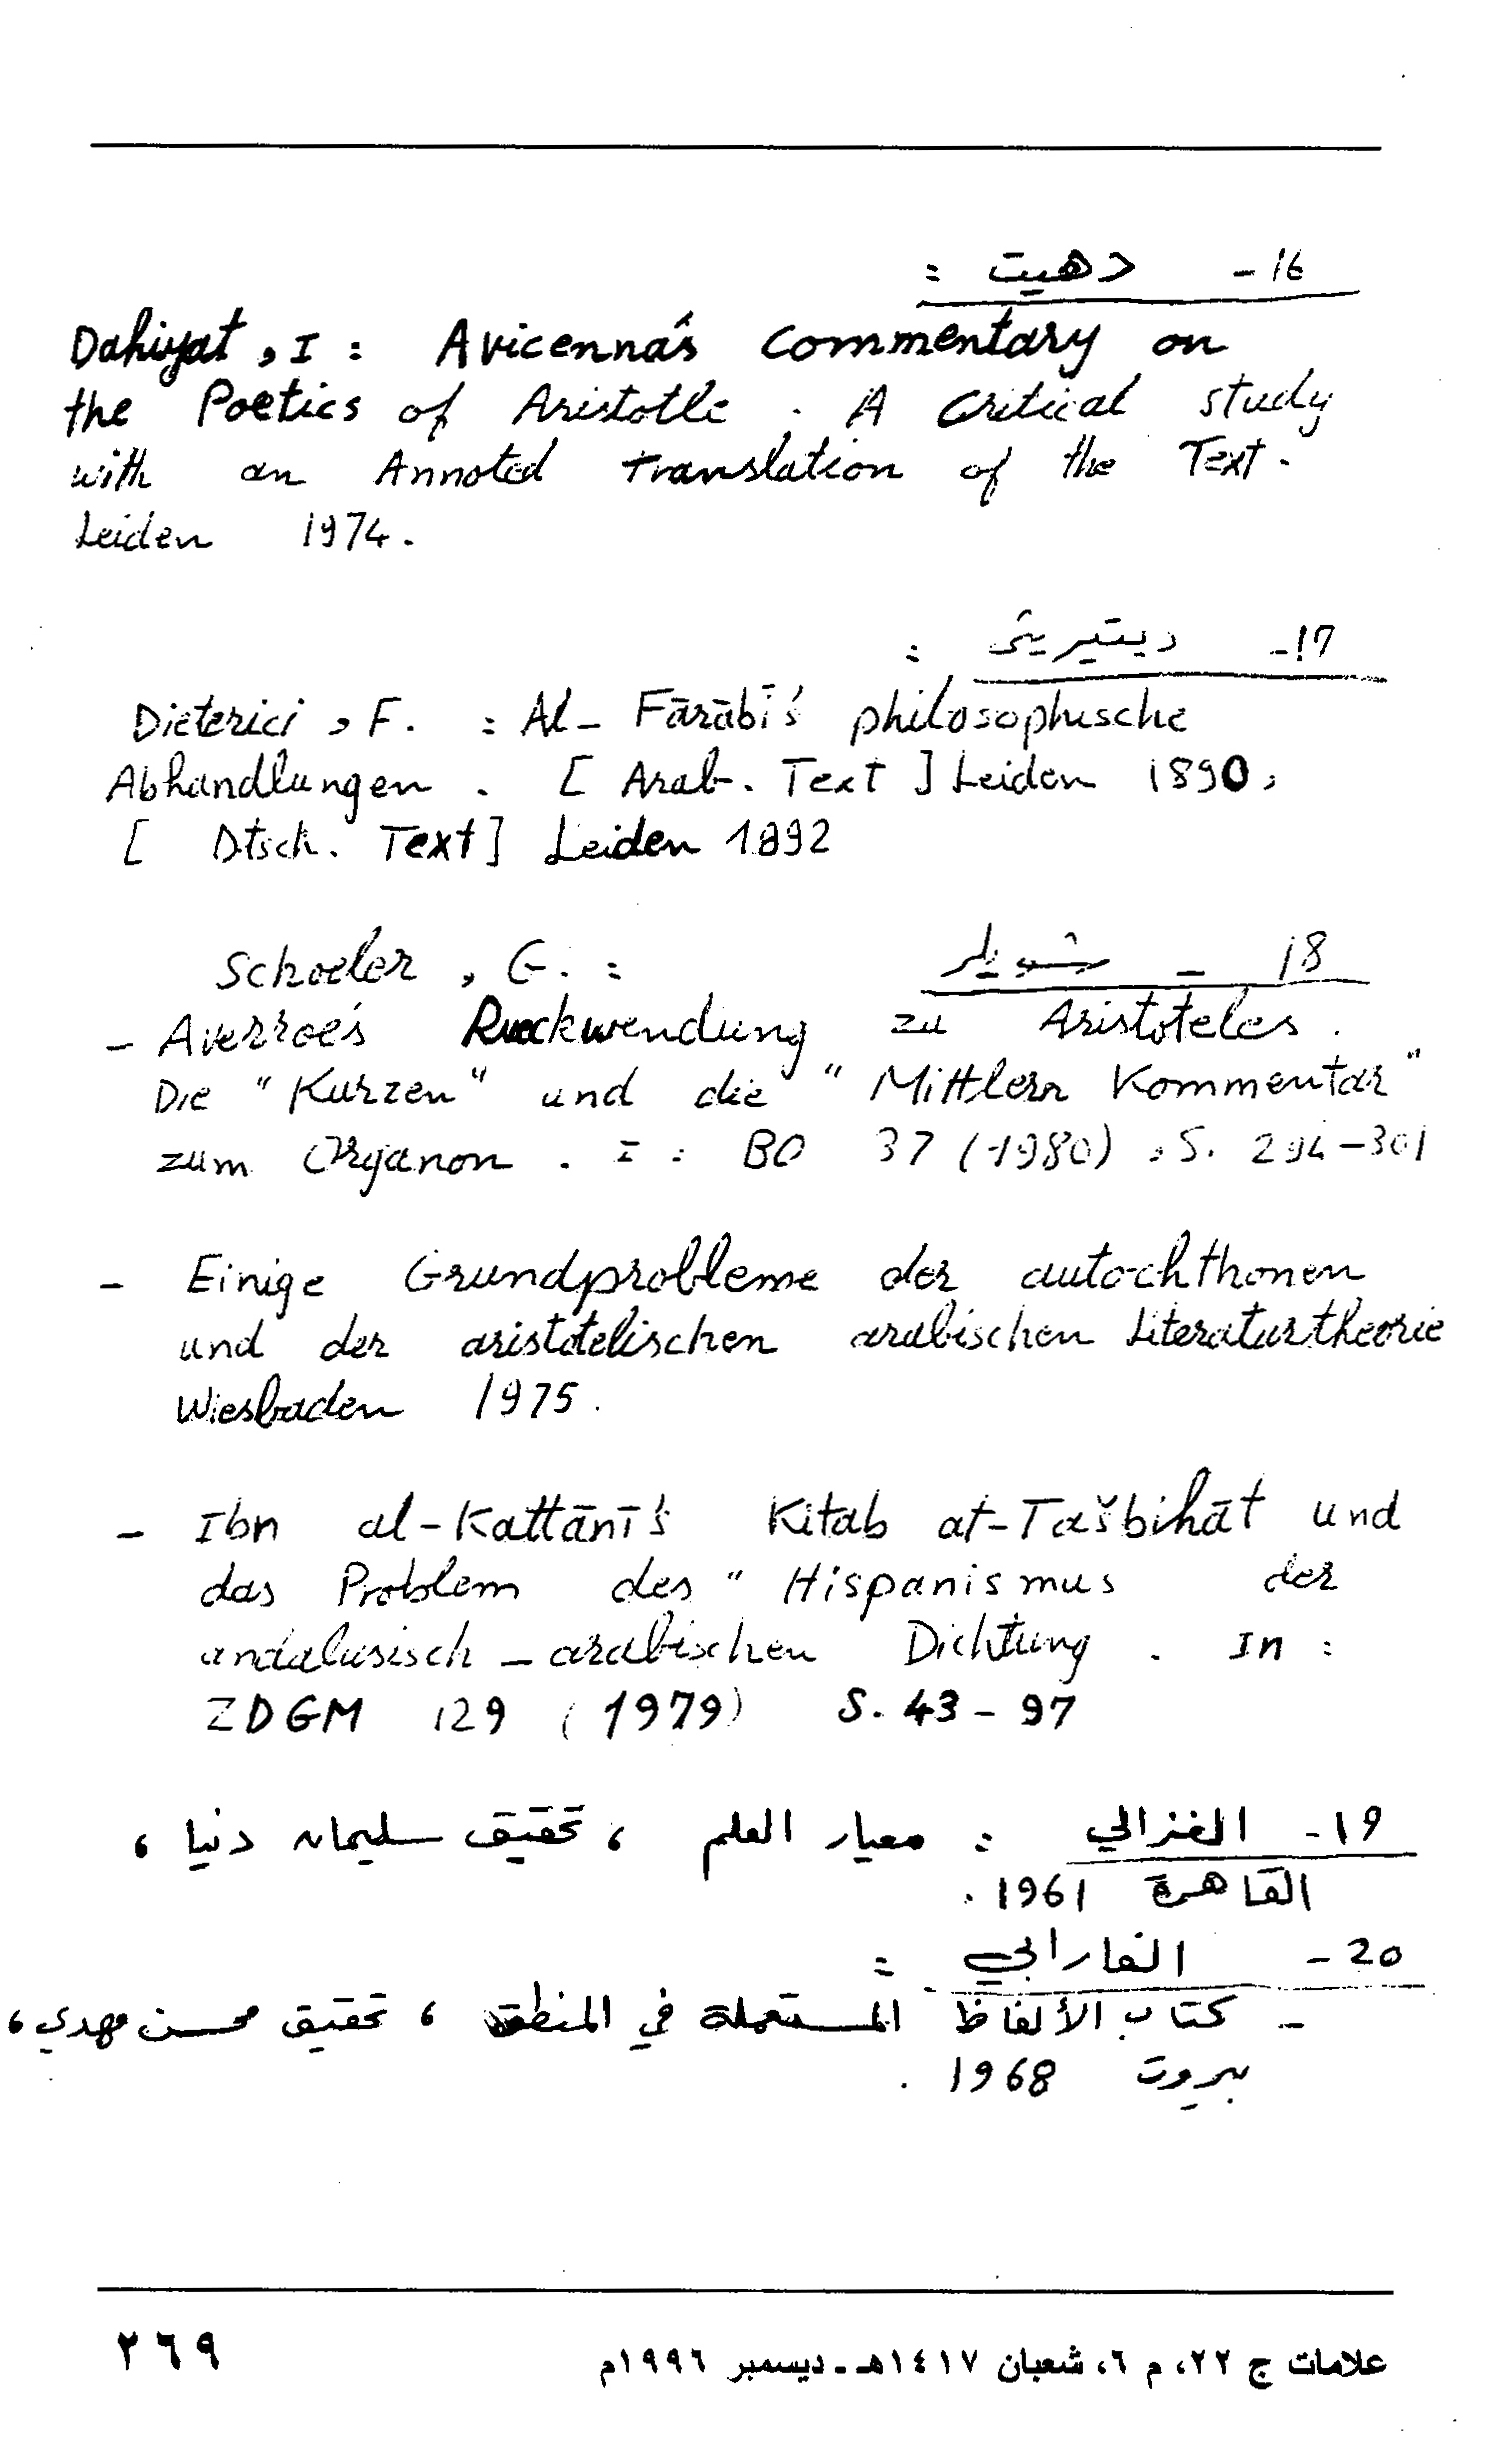 16- دهيت :
Dahiyat, I : Avicenna's Commentary on
the Poetics of Aristotle. A critical study
with an Annoted Translation of the Text.
Leiden 1974.
17- ديتيريتى :
Dieterici, F. : Al-Fārābī's philosophische
Abhandlungen. [Arab. Text] Leiden 1890,
[Dtsch. Text] Leiden 1892
18 - شويلر
Schoeler, G. :
- Averroe's Rueckwendung zu Aristoteles.
Die "Kurzen" und die "Mittlern Kommentar"
zum Organon. I : BO 37 (1980), S. 294-301
- Einige Grundprobleme der autochthonen
und der aristotelischen arabischen Literaturtheorie
Wiesbaden 1975.
- Ibn al-Kattānī's Kitab at-Tašbihāt und
das Problem des "Hispanismus der
andalusisch-arabischen Dichtung. In :
ZDGM 129 (1979) S. 43-97
19- الغزالي : معيار العلم ، تحقيق سليمان دنيا ،
القاهرة 1961 .
20- الفارابي :
- كتاب الألفاظ المستعملة في المنطق ، تحقيق محسن مهدي ،
بيروت 1968 .
علامات ج ٢٢، م ٦، شعبان ١٤١٧هـ - ديسمبر ١٩٩٦م
٢٦٩